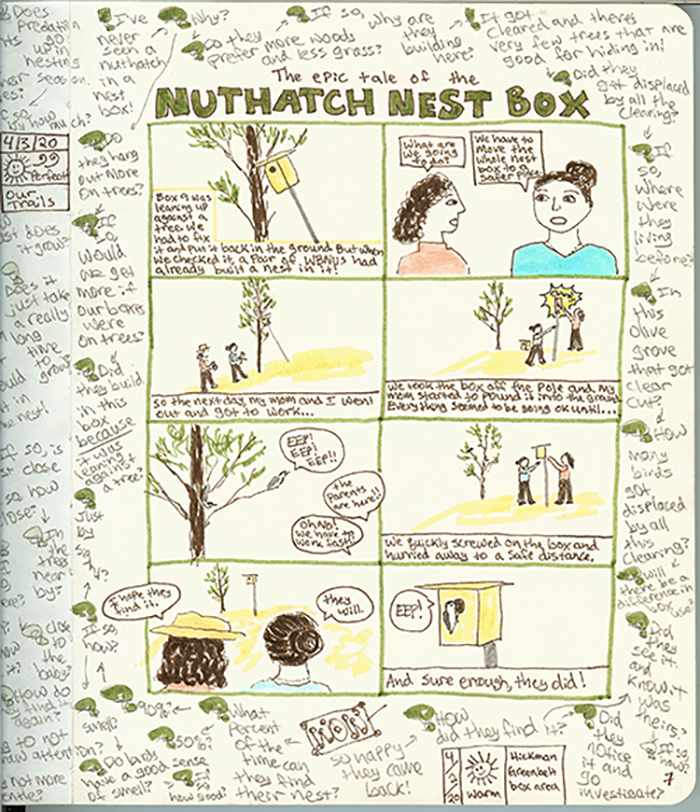 I've
never
seen a
nuthatch
in a
nest
box!
Why?
Do they
prefer more woods
and less grass?
If so,
why are
they
building
here?
It got
cleared and there's
very few trees that are
good for hiding in!
Did they
get displaced
by all the
clearing?
If
so,
where
were
they
living
before?
In
this
olive
grove
that got
clear
cut?
How
many
birds
got
displaced
by all
this
clearing?
Will
there be a
difference in box use
Did
they
see it
and
know it
was
theirs?
If so,
how?
The epic tale of the
NUTHATCH NEST BOX
Box 9 was
leaning up
against a
tree. We
had to fix
it and put it back in the ground. But when
we checked it, a pair of WBNUs had
already built a nest in it!
What are
we going
to do?
We have to
move the
whole nest
box to a
safer place.
So the next day, my mom and I went
out and got to work...
We took the box off the pole and my
mom started to pound it into the ground.
Everything seemed to be going ok until...
EEP!
EEP!
EEP!!
The
parents
are here!!
Oh No!
We have to
work fast!
We quickly screwed on the box and
hurried away to a safe distance.
I hope they
find it.
they
will.
EEP!
And sure enough, they did!
Do
they hang
out more
on trees?
If
so,
would
we get
more if
our boxes
were
on trees?
Did
they build
in this
box
because
it was
leaning
against
a tree?
Just
by
If so,
how?
Smell?
Do birds
have a good sense
of smell?
If so,
how good?
90%?
50%?
What
percent
of the
time can
they find
their nest?
WOW!
so happy
they came
back!
How
did they find it?
Did
they
notice it
and go
investigate?
4
2
20
Warm
Hickman
Greenbelt
box area
7
4/3/20
Perfect
Our
trails
Does
In
the
trees
near
by?